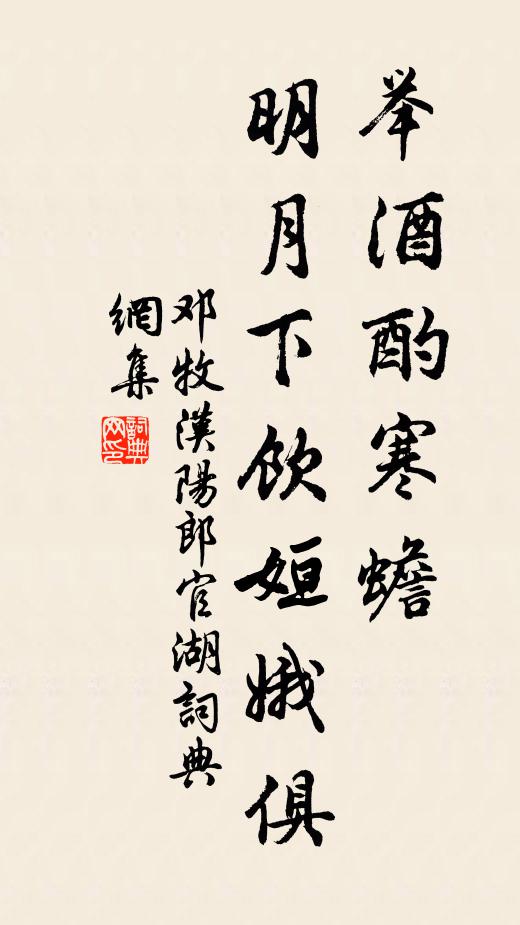 举酒酌寒蟾
明月下饮姮娥俱
邓牧漢陽郎官湖詞典
網集
詞典
网印